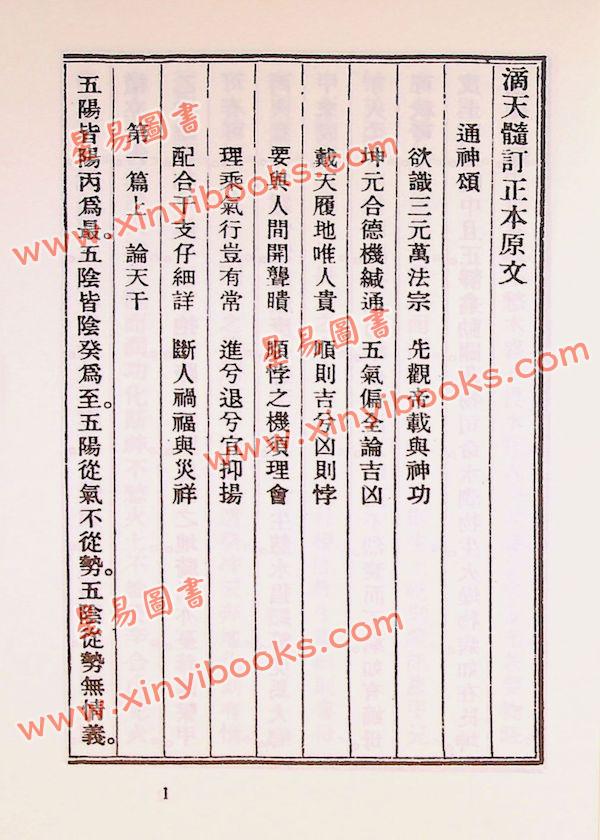 滴天髓訂正本原文
通神頌
欲識三元萬法宗 先觀帝載與神功
坤元合德機緘通 五氣偏全論吉凶
戴天履地唯人貴 順則吉兮凶則悖
要與人間開聾聵 順悖之機須理會
理乘氣行豈有常 進兮退兮宜抑揚
配合干支仔細詳 斷人禍福與災祥
第一篇上 論天干
五陽皆陽丙爲最。五陰皆陰癸爲至。五陽從氣不從勢。五陰從勢無情義。
1
星易圖書
www.xinyibooks.com
星易圖書
www.xinyibooks.com
星易圖書
www.xinyibooks.com